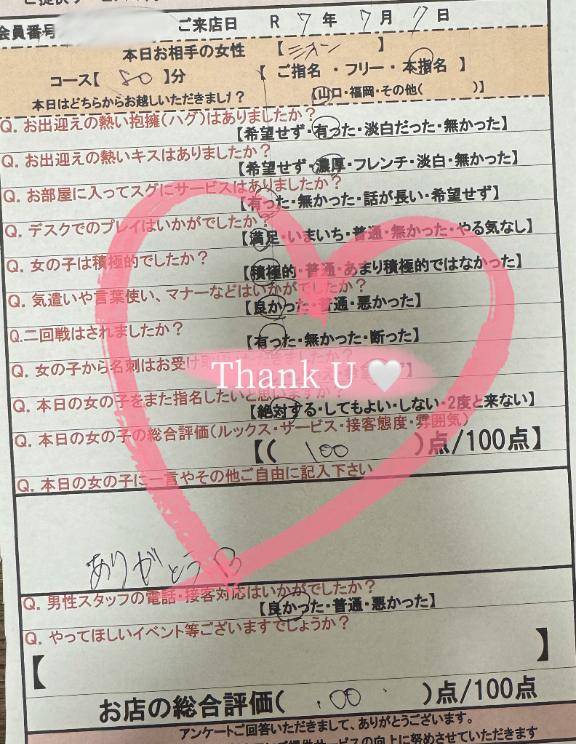 会員番号
ご来店日 R 7 年 7 月 日
本日お相手の女性 【ミオン 】
コース【 80 】分 【 ご指名 ・ フリー ・ 本指名 】
本日はどちらからお越しいただきまし? 【山口・福岡・その他( )】
Q. お出迎えの熱い抱擁(ハグ)はありましたか?
【希望せず・有った・淡白だった・無かった】
Q. お出迎えの熱いキスはありましたか?
【希望せず・濃厚・フレンチ・淡白・無かった】
Q. お部屋に入ってスグにサービスはありましたか?
【有った・無かった・話が長い・希望せず】
Q. デスクでのプレイはいかがでしたか?
【満足・いまいち・普通・無かった・やる気なし】
Q. 女の子は積極的でしたか?
【積極的・普通・あまり積極的ではなかった】
Q. 気遣いや言葉使い、マナーなどはいかがでしたか?
【良かった・普通・悪かった】
Q.二回戦はされましたか?
【有った・無かった・断った】
Q. 女の子から名刺はお受け
Thank U 🤍
Q. 本日の女の子をまた指名したいと思いますか?
【絶対する・してもよい・しない・2度と来ない】
Q. 本日の女の子の総合評価(ルックス・サービス・接客態度・雰囲気)
【( 100 )点/100点】
Q. 本日の女の子に一言やその他ご自由に記入下さい
ありがとう
Q. 男性スタッフの電話・接客対応はいかがでしたか?
【良かった・普通・悪かった】
Q. やってほしいイベント等ございますでしょうか?
【 】
お店の総合評価( 100 )点/100点
アンケートご回答いただきまして、ありがとうございます。
サービスの向上に努めさせていただきます